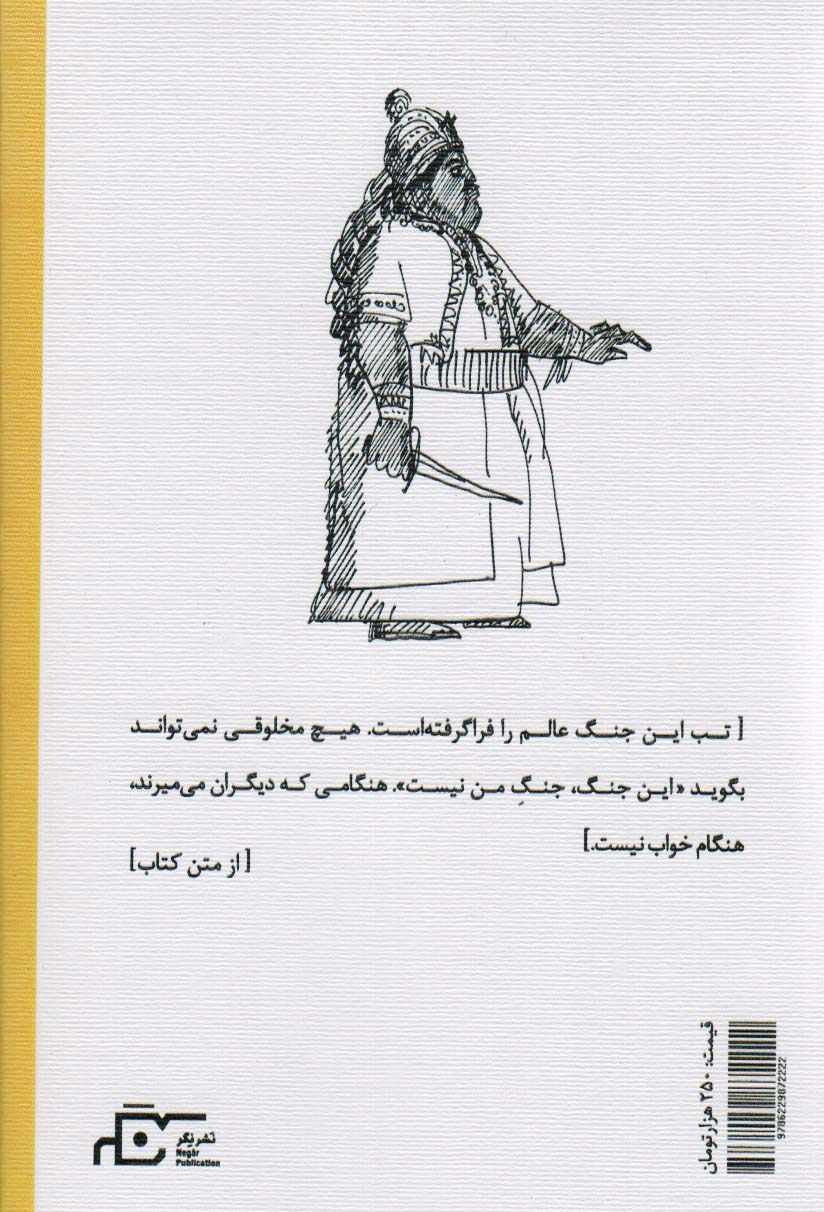 [ تب این جنگ عالم را فراگرفته‌است. هیچ مخلوقی نمی‌تواند
بگوید «این جنگ، جنگِ من نیست». هنگامی که دیگران می‌میرند،
هنگام خواب نیست.]
[ از متن کتاب]
قیمت: ۲۵۰ هزار تومان
9786229872222
نشر نگر
Negar
Publication